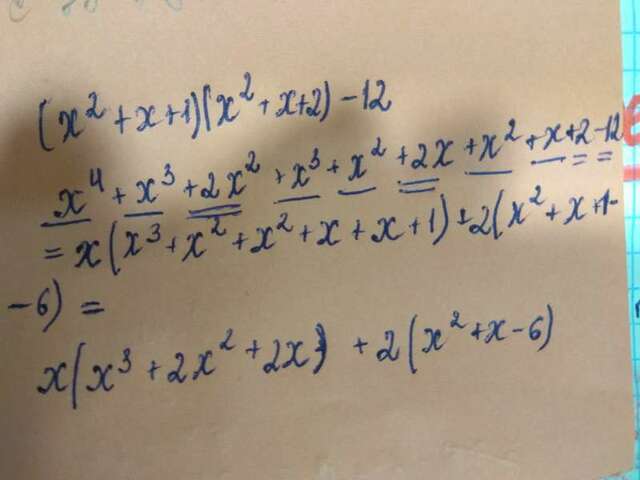 (x² + x + 1)(x² + x + 2) - 12
x⁴ + x³ + 2x² + x³ + x² + 2x + x² + x + 2 - 12
= x(x³ + x² + x² + x + x + 1) + 2(x² + x + 1 -
- 6) =
x(x³ + 2x² + 2x) + 2(x² + x - 6)